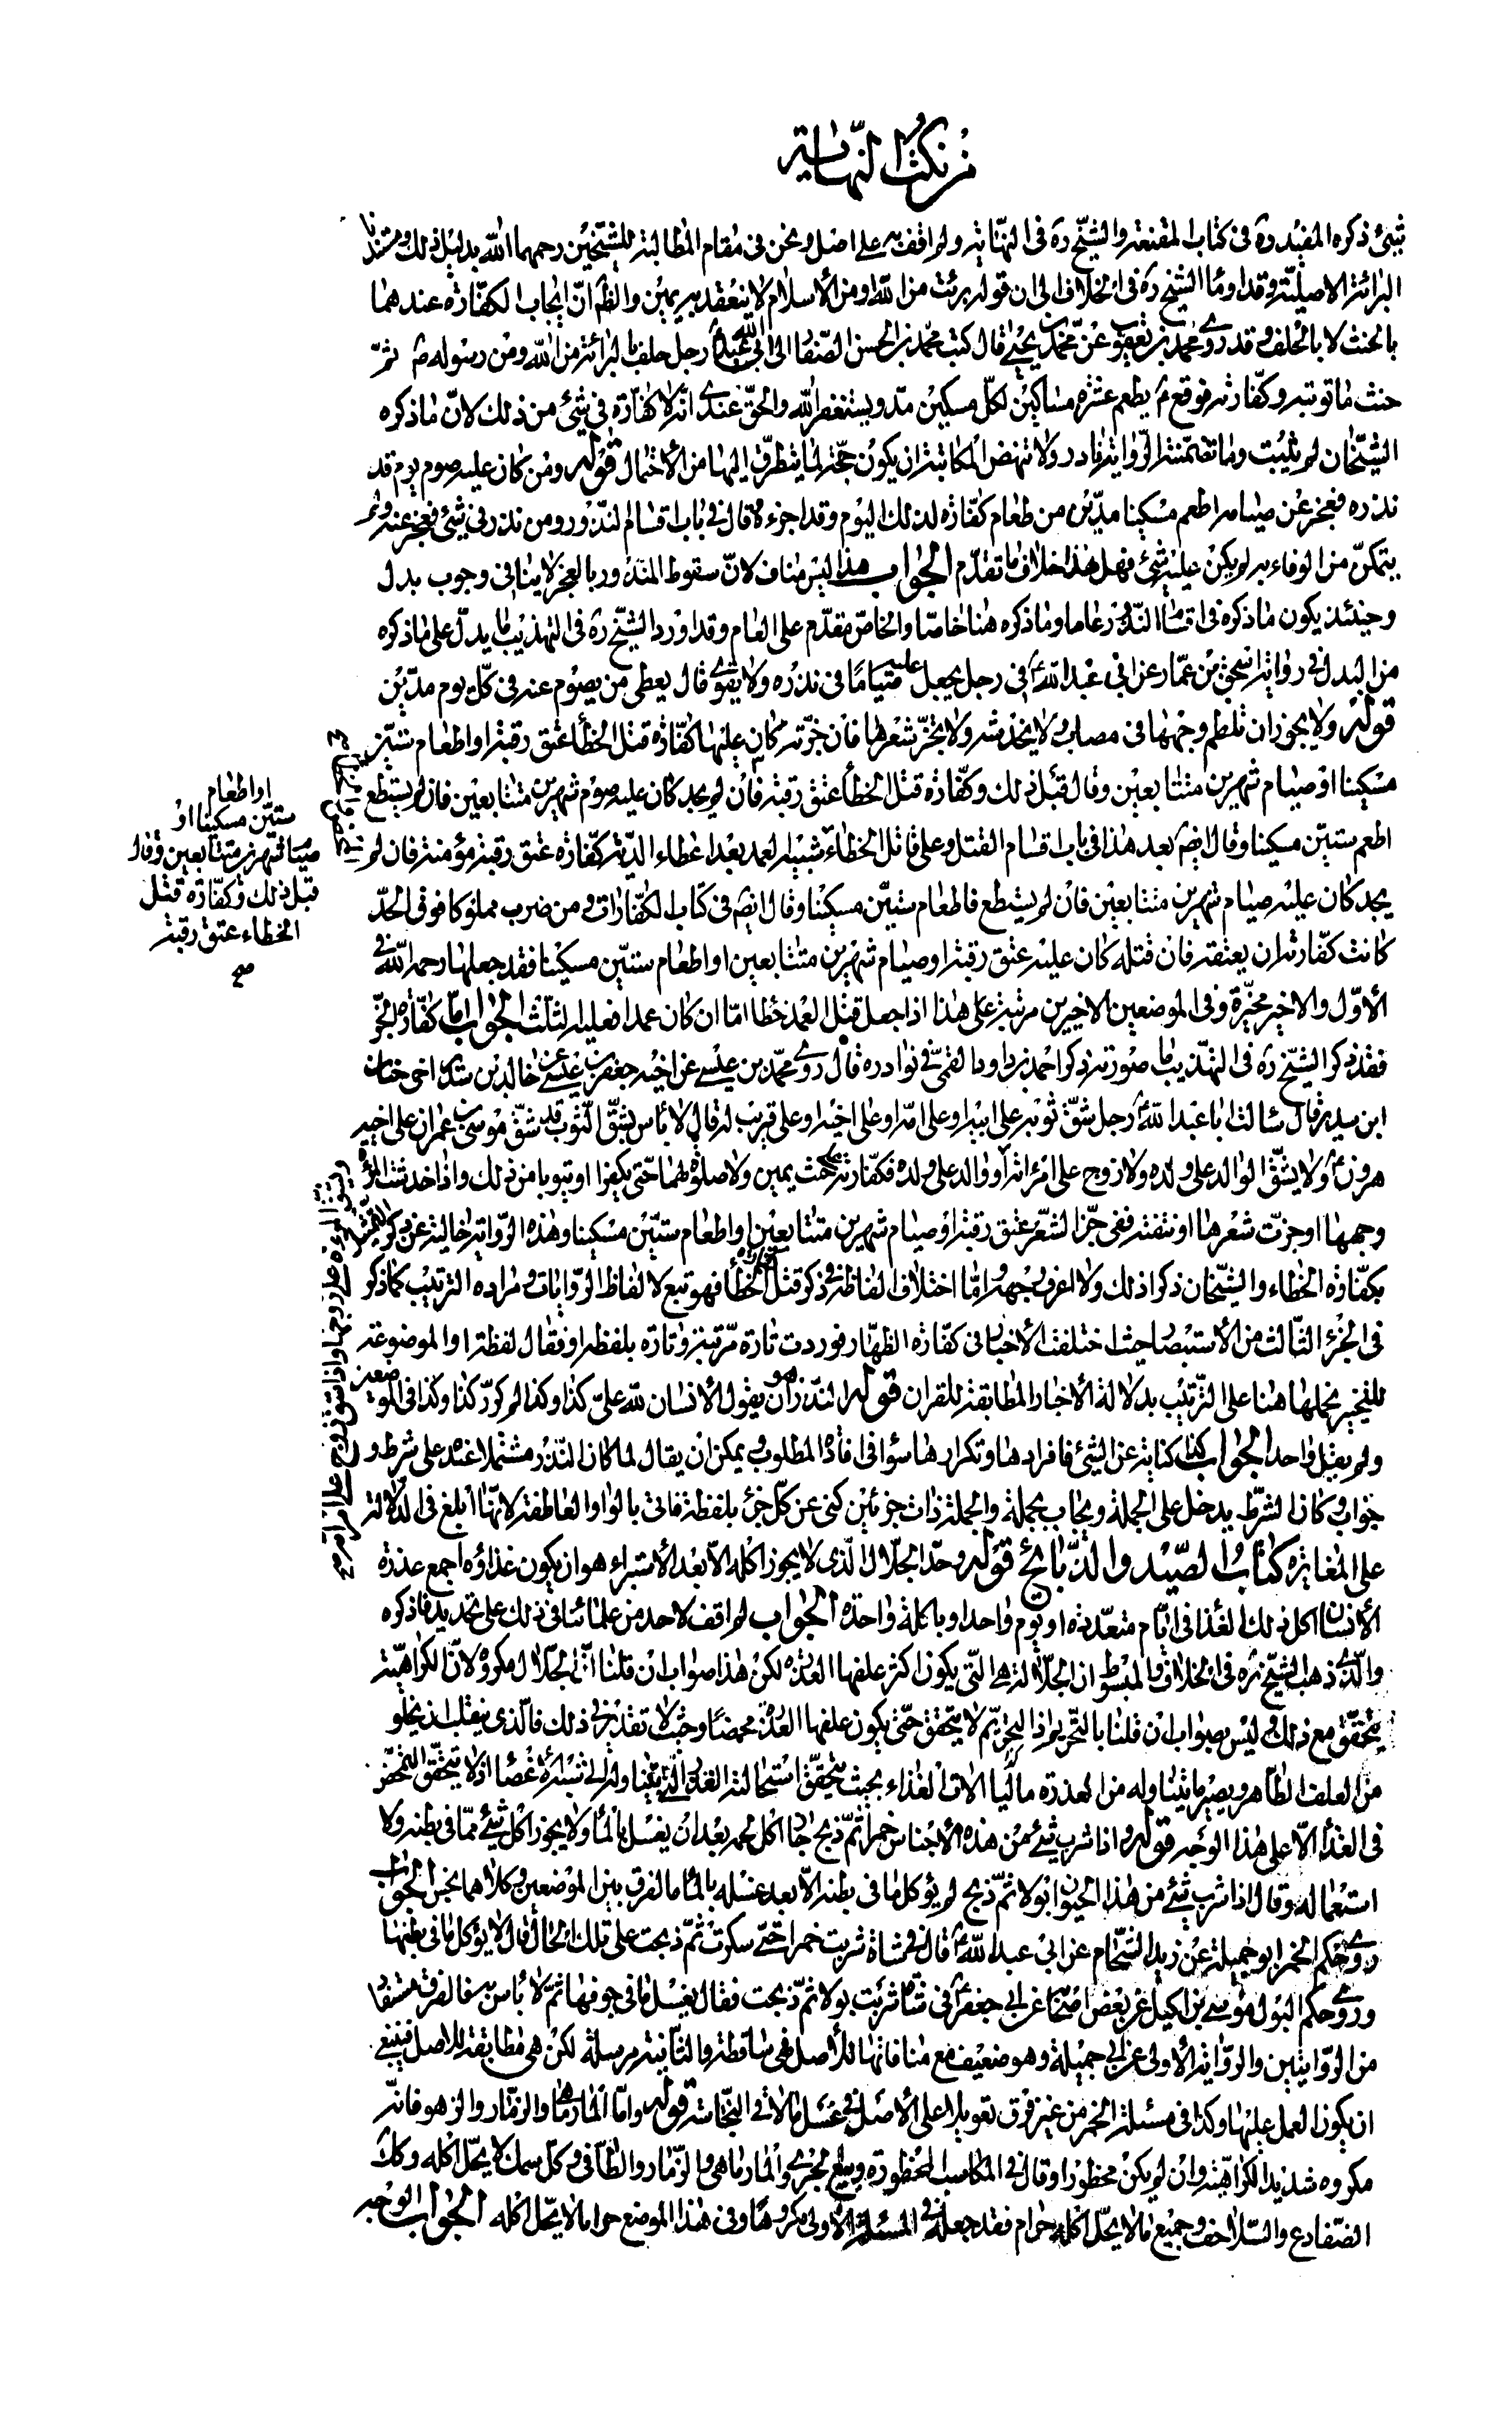 من نكت النهاية
شيئ ذكره المفيد ره فى كتاب المقنعة والشيخ ره فى النهاية ولم اقف به على اصل ونحن فى مقام المطالبة للشيخين رحمهما الله بدليل ذلك
البرائة الاصلية وقد اومأ الشيخ ره فى الخلاف الى ان قوله برئت من الله او من الاسلام لا ينعقد به يمين والظ ان ايجاب الكفارة عندهما
بالحنث لا بالحلف وقد روى محمد بن يعقوب عن محمد بن يحيى قال كتب محمد بن الحسن الصفار الى ابى عبد الله رجل حلف بالبرائة من الله ومن رسوله ثم
حنث ما توبته وكفارته فوقع يطعم عشرة مساكين لكل مسكين مد ويستغفر الله والحق عندى انه لا كفارة فى شيئ من ذلك لان ما ذكره
الشيخان لم يثبت وما تضمنته الرواية نادر ولا تنهض المكاتبة ان يكون حجة لما يتطرق اليها من الاحتمال قوله ومن كان عليه صوم يوم قد
نذره فعجز عن صيامه اطعم مسكينا مدين من طعام كفارة لذلك اليوم وقد اجزءه وقال فى باب اقسام النذور ومن نذر فى شيئ فعجز عنه ولم
يتمكن من الوفاء به لم يكن عليه شيئ فهل هذا خلاف ما تقدم الجواب هذا ليس مناف لان سقوط المنذور بالعجز لا ينافى وجوب بدل
وحينئذ يكون ما ذكره فى اقسام النذر عاما وما ذكره هنا خاصا والخاص مقدم على العام وقد اورد الشيخ ره فى التهذيب ما يدل على ما ذكره
من البدل فى رواية اسحق بن عمار عن ابى عبد الله فى رجل يجعل عليه صياما فى نذره ولا يقوى قال يعطى من يصوم عنه فى كل يوم مدين
قوله ولا يجوز ان تلطم وجهها فى مصاب ولا يخدشه ولا يجز شعرها فان جزته كان عليها كفارة قتل الخطأ عتق رقبة او اطعام ستين
مسكينا او صيام شهرين متتابعين وقال قبل ذلك وكفارة قتل الخطأ عتق رقبة فان لم يجد كان عليه صوم شهرين متتابعين فان لم يستطع
اطعم ستين مسكينا وقال ايضا بعد هذا فى باب اقسام القتل وعلى قاتل الخطاء شبيه العمد بعد اعطاء الدية كفارة عتق رقبة مؤمنة فان لم
يجد كان عليه صيام شهرين متتابعين فان لم يستطع فاطعام ستين مسكينا وقال ايضا فى كتاب الكفارات ومن ضرب مملوكا فوق الحد
كانت كفارته ان يعتقه فان قتله كان عليه عتق رقبة او صيام شهرين متتابعين او اطعام ستين مسكينا فقد جعلها رحمه الله فى
الاول والاخير مخيرة وفى الموضعين الاخيرين مرتبة على هذا اذا جعل قتل العمد خطأ اما ان كان عمدا فعليه الثلث الجواب اما كفارة الجز
فقد ذكر الشيخ ره فى التهذيب ما صورته ذكر احمد بن داود القمى فى نوادره قال روى محمد بن عيسى عن اخيه جعفر بن عيسى عن خالد بن سدير اخى حنان
ابن سدير قال سالت ابا عبد الله رجل شق ثوبه على ابيه او على امه او على اخيه او على قريب له قال لا بأس بشق الثوب قد شق موسى بن عمران على اخيه
هرون ولا يشق الوالد على ولده ولا زوج على امرأته او والد على ولده فكفارته حنث يمين ولا صلوة لهما حتى يكفرا او يتوبا من ذلك واذا خدشت المرأة
وجهها او جزت شعرها او نتفته ففى جز الشعر عتق رقبة او صيام شهرين متتابعين او اطعام ستين مسكينا وهذه الرواية خالية عن ذكر التمثيل
بكفارة الخطاء والشيخان ذكرا ذلك ولا اعرف وجهه واما اختلاف الفاظه فى ذكر قتل الخطأ فهو تبع لالفاظ الروايات ومراده الترتيب كما ذكر
فى الجزء الثالث من الاستبصار حيث اختلفت الاخبار فى كفارة الظهار فوردت تارة مرتبة وتارة بلفظ او فقال لفظة او الموضوعة
للتخيير نحملها هنا على الترتيب بدلالة الاخبار المطابقة للقران قوله النذر هو ان يقول الانسان لله على كذا وكذا لم كرر كذا وكذا فى الموضعين
ولم يقل واحدا الجواب كذا كناية عن الشيئ فافرادها وتكرارها سواء فى افادة المطلوب ويمكن ان يقال لما كان النذر مشتملا عنده على شرط و
جواب وكان الشرط يدخل على الجملة ويجاب بجملة والجملة ذات جزئين كنى عن كل جزء بلفظة فاتى بالواو العاطفة لانها ابلغ فى الدلالة
على المغايرة كتاب الصيد والذبائح قوله وحد الجلال الذى لا يجوز اكله الا بعد الاستبراء هو ان يكون غذاؤه اجمع عذرة
الانسان اكل ذلك الغذا فى ايام متعددة او يوم واحد او باكلة واحدة الجواب لم اقف لاحد من علمائنا فى ذلك على تحديد ما ذكره
والذى ذهب الشيخ ره فى الخلاف والمبسوط ان الجلالة هى التى يكون اكثر علفها العذرة لكن هذا صواب ان قلنا ان الجلال مكروه لان الكراهية
يتحقق مع ذلك وليس بصواب ان قلنا بالتحريم اذ التحريم لا يتحقق حتى يكون علفها العذرة محضا وحيث لا تقدير فى ذلك فالذى يغلب ان يخلو
من العلف الطاهر ويصير ما يتناوله من العذرة ماليا لالات الغذاء بحيث يتحقق استحالة الغذاء الذى يتناوله الى نشره غصا اذ لا يتحقق التمحض
فى الغذاء الا على هذا الوجه قوله واذا شرب شيئ من هذه الاجناس خمرا ثم ذبح جاز اكل لحمه بعد ان يغسل بالماء ولا يجوز اكل شيئ مما فى بطنه ولا
استعماله وقال اذا شرب شيئ من هذا الحيوان بولا ثم ذبح لم يؤكل ما فى بطنه الا بعد غسله بالماء ما الفرق بين الموضعين وكلاهما نجس الجواب
روى حكم الخمر ابو جميلة عن زيد الشحام عن ابى عبد الله قال فى شاة شربت خمرا حتى سكرت ثم ذبحت على تلك الحال قال لا يؤكل ما فى بطنها
وروى حكم البول موسى بن اكيل عن بعض اصحابنا عن ابى جعفر فى شاة شربت بولا ثم ذبحت فقال يغسل ما فى جوفها ثم لا بأس به فالفرق مستفاد
من الروايتين والرواية الاولى عن ابى جميلة وهو ضعيف مع منافاتها للاصل فهى ساقطة والثانية مرسلة لكن هى مطابقة للاصل فينبغى
ان يكون العمل عليها وكذا فى مسئلة الخمر من غير فرق تعويلا على الاصل فى غسل ما لاقى النجاسة قوله واما المارماهى والزمار والزهو فانه
مكروه شديد الكراهية وان لم يكن محظورا وقال فى المكاسب المحظورة وبيع الجرى والمارماهى والزمار والطافى وكل سمك لا يحل اكله وكك
الضفادع والسلاحف وجميع ما لا يحل اكله حرام فقد جعله فى المسئلة الاولى مكروها وفى هذا الموضع حراما لا يحل اكله الجواب الوجه
او اطعام
ستين مسكينا او
صيام شهرين متتابعين وقال
قبل ذلك وكفارة قتل
الخطاء عتق رقبة
صح